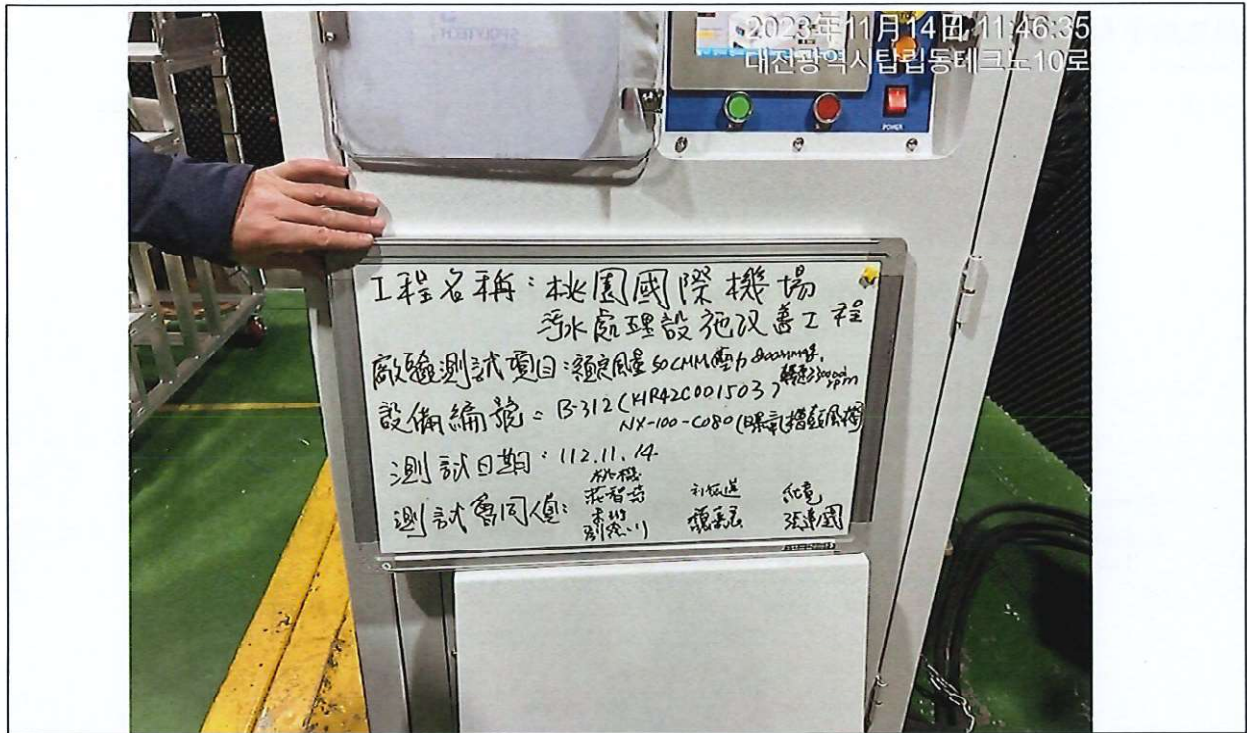 2023年11月14日 11:46:35
대전광역시탑립동테크노10로
POWER
工程名稱：桃園國際機場
污水處理設施改善工程
廠驗測試項目：額定風量50CMM壓力800mmAq.
轉速 rpm
設備編號：B-312(K1R42C001503)
NX-100-C080(曝氣槽鼓風機)
測試日期：112.11.14
測試會同人員：
桃機
莊智
張